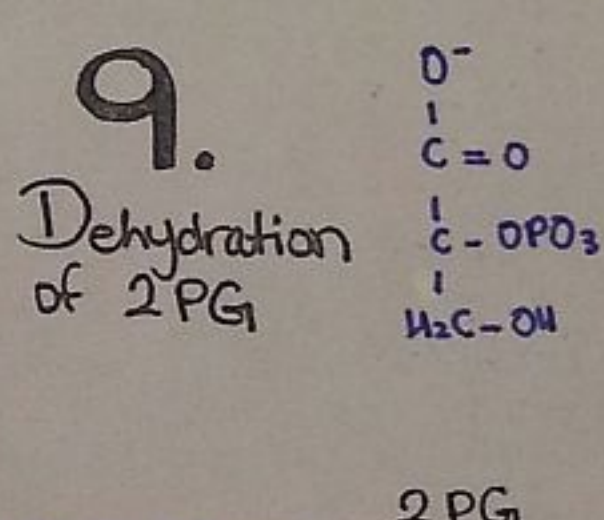 9.
Dehydration
of 2PG
O⁻
C = O
C - OPO₃
H₂C - OH
2 PG